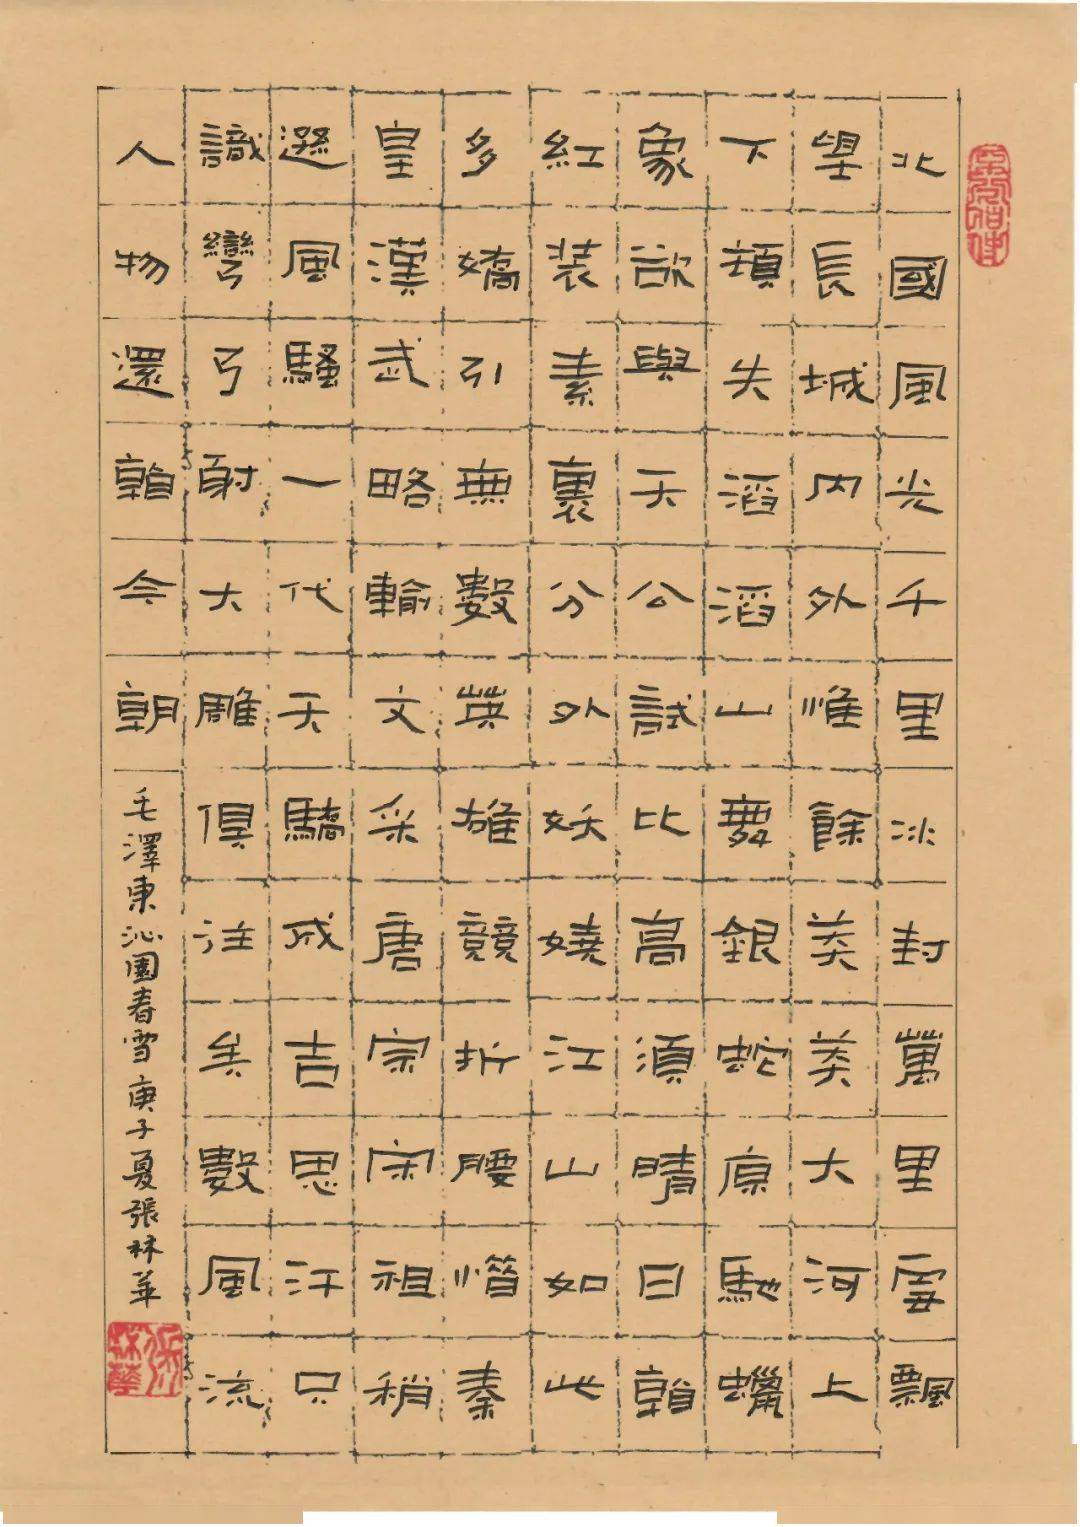 北國風光千里冰封萬里雪飄
望長城內外惟餘莽莽大河上
下頓失滔滔山舞銀蛇原馳蠟
象欲與天公試比高須晴日看
紅裝素裹分外妖嬈江山如此
多嬌引無數英雄競折腰惜秦
皇漢武略輸文采唐宗宋祖稍
遜風騷一代天驕成吉思汗只
識彎弓射大雕俱往矣數風流
人物還看今朝
毛澤東沁園春雪庚子夏張林華
張林華